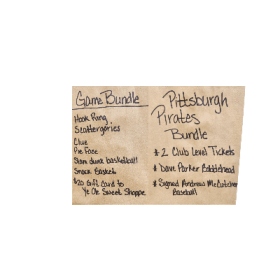 Game Bundle
Hook Ring
Scattergories
Clue
Pie Face
Slam dunk basketball
Snack Basket
$20 Gift Card to
Ye Ole Sweet Shoppe
Pittsburgh
Pirates
Bundle
* 2 Club Level Tickets
* Dave Parker Bobblehead
* Signed Andrew McCutchen
Baseball